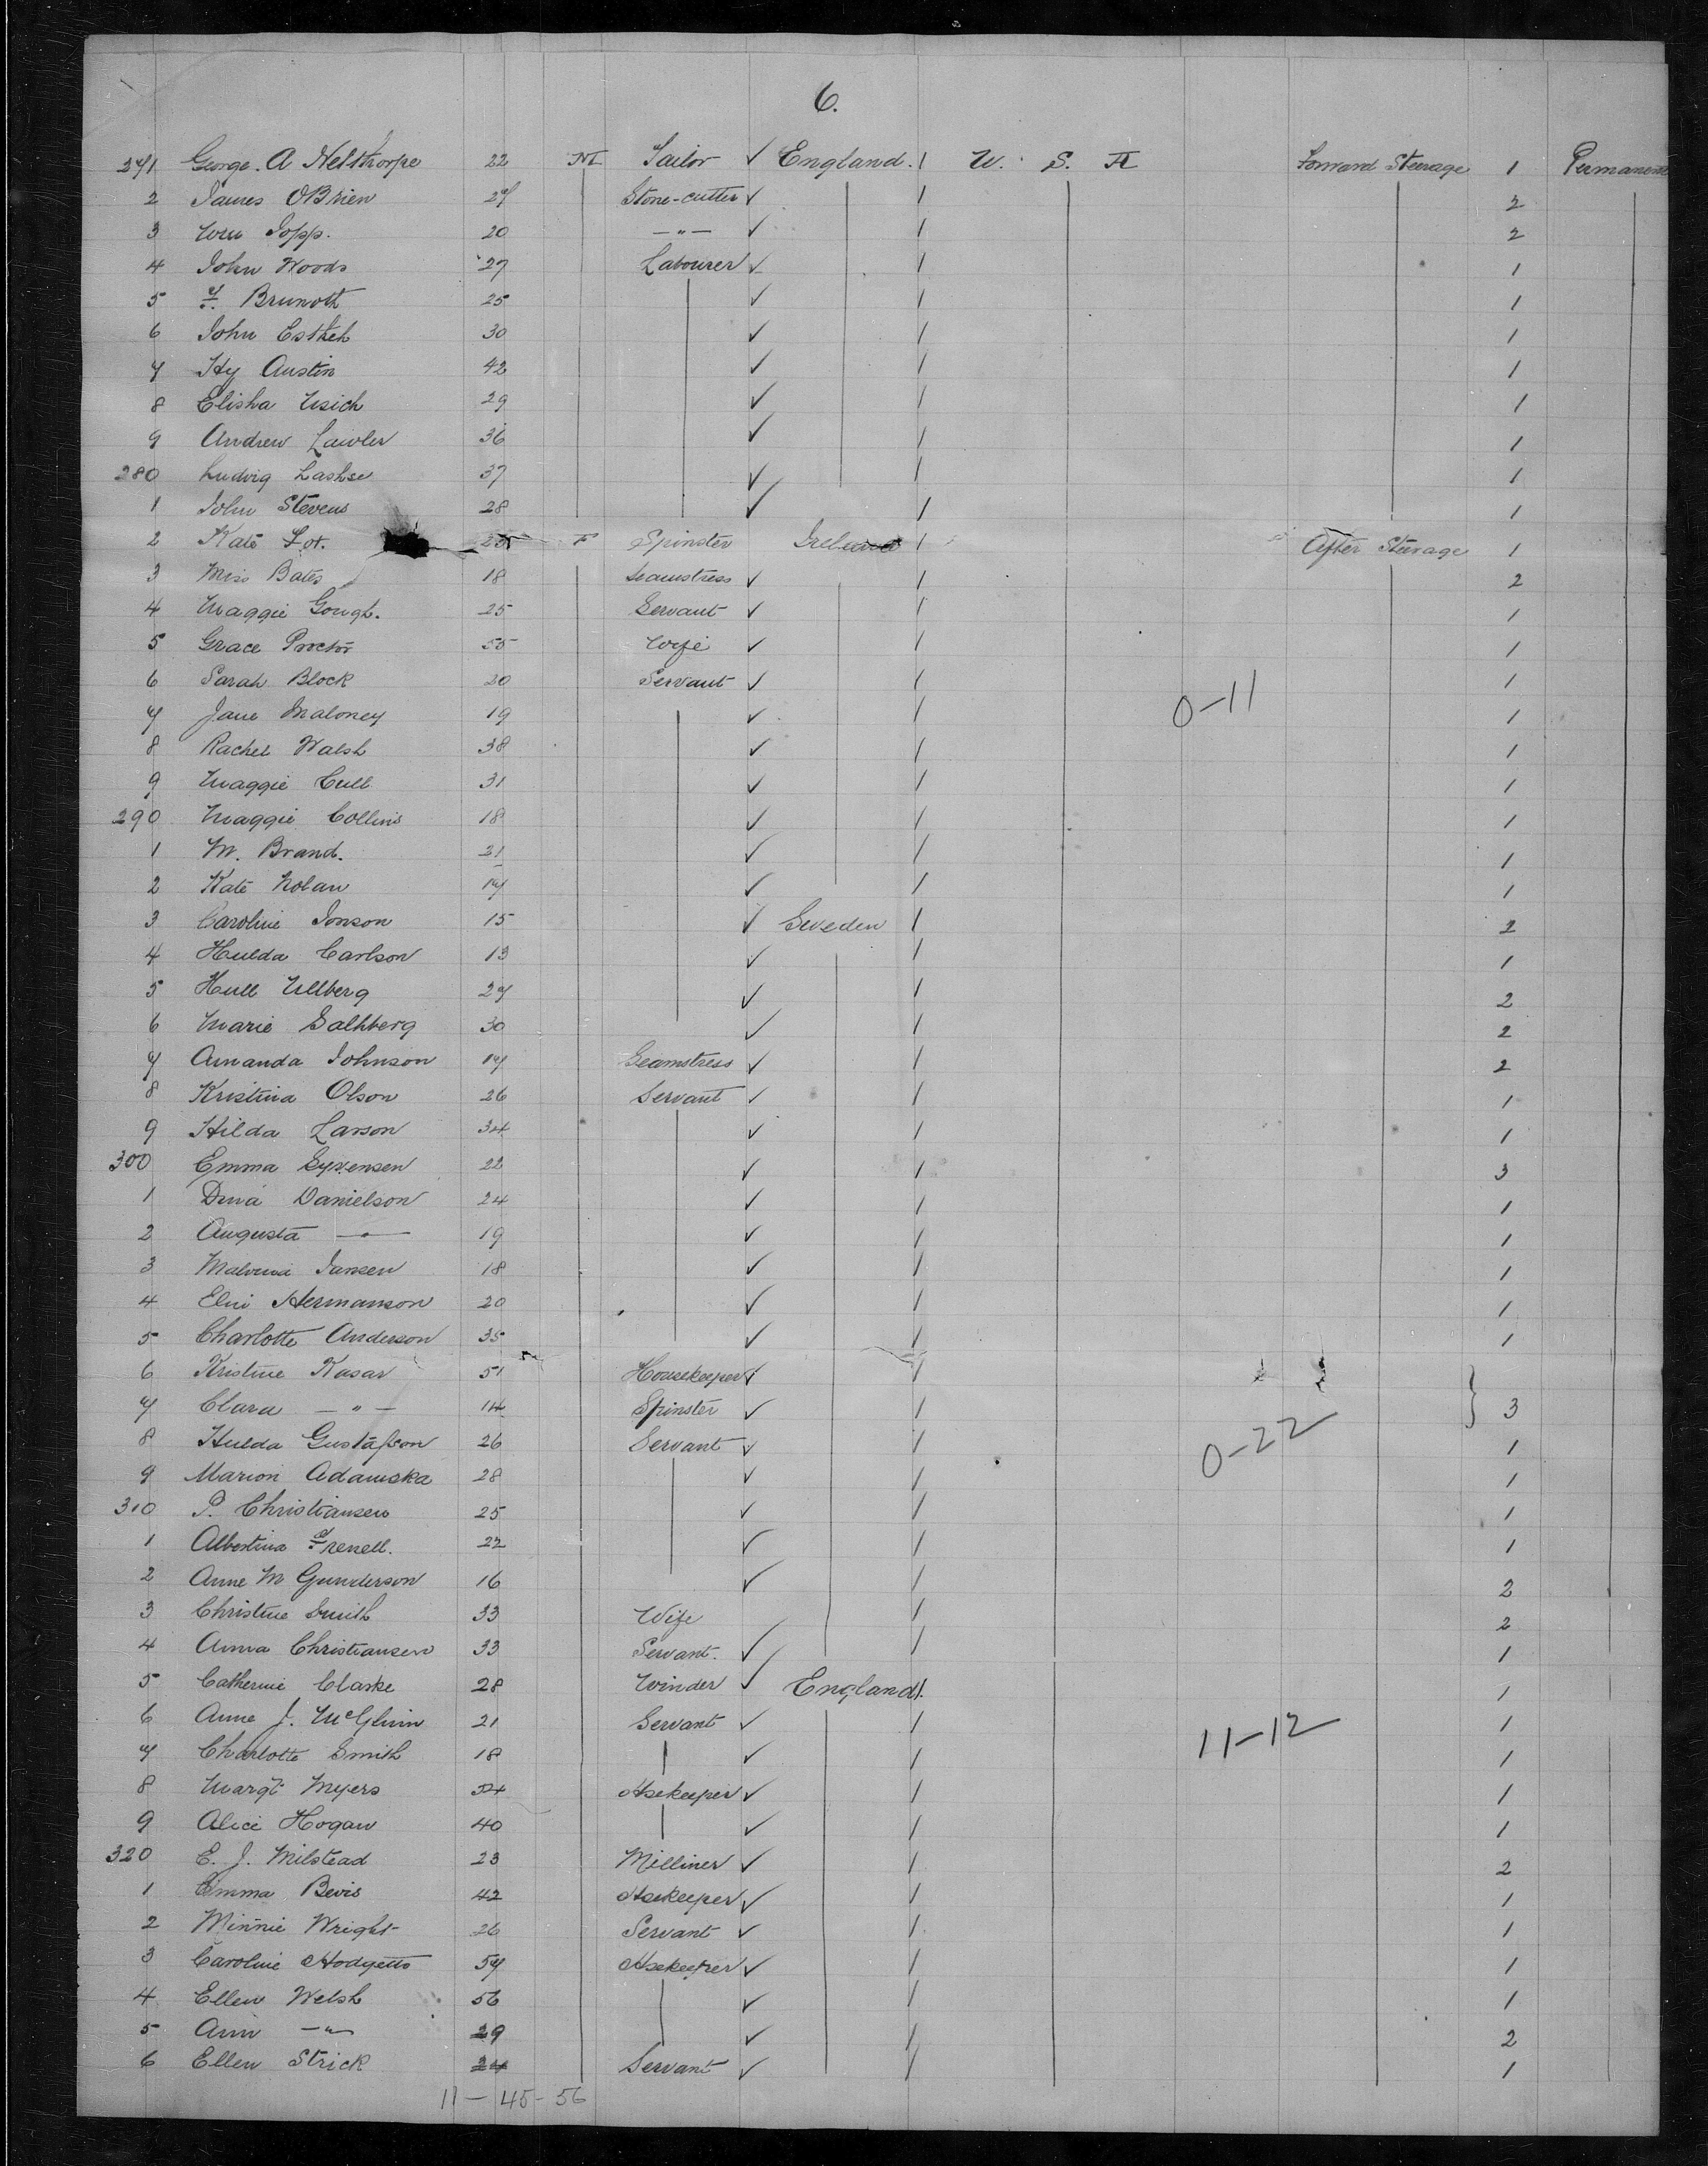 6.
271 George. A Nelthorpe 22 M Tailor ✓ England. / U. S. A Forward Steerage 1 Permanent
2 James OBrien 27 Stone-cutter ✓ / 2
3 Wm Topp. 20 — " — ✓ / 2
4 John Woods 27 Labourer ✓ / 1
5 F. Brunott 25 ✓ / 1
6 John 30 ✓ / 1
7 Hy Austin 42 ✓ / 1
8 Elisha 29 ✓ / 1
9 Andrew Lawler 36 ✓ / 1
280 Ludvig 37 ✓ / 1
1 John Stevens 28 ✓ / 1
2 Kate F Spinster Ireland / After Steerage 1
3 Miss Bates 18 Seamstress ✓ / 2
4 Maggie Gough. 25 Servant ✓ / 1
5 Grace Proctor 55 Wife ✓ / 1
6 Sarah Block 20 Servant ✓ / 1
0-11
7 Jane Maloney 19 ✓ / 1
8 Rachel Walsh 38 ✓ / 1
9 Maggie Cull 31 ✓ / 1
290 Maggie Collins 18 ✓ / 1
1 M. Brand. 21 ✓ / 1
2 Kate Nolan 17 ✓ / 1
3 Caroline Jonson 15 ✓ Sweden / 2
4 Hulda Carlson 13 ✓ / 1
5 Hull Ullberg 27 ✓ / 2
6 Marie Salhberg 30 ✓ / 2
7 Amanda Johnson 17 Seamstress ✓ / 2
8 Kristina Olson 26 Servant ✓ / 1
9 Hilda Larson 34 ✓ / 1
300 Emma 22 ✓ / 3
1 Danielson 24 ✓ / 1
2 Augusta — " — 19 ✓ / 1
3 Malvina Jansen 18 ✓ / 1
4 Elni Hermanson 20 ✓ / 1
5 Charlotte Anderson 35 ✓ / 1
6 Kristine Kasar 51 Housekeeper ✓ / }
7 Clara — " — 14 Spinster ✓ / 3
8 Hulda Gustafson 26 Servant ✓ / 0-22 1
9 Marion Adamska 28 ✓ / 1
310 P. Christiansen 25 ✓ / 1
1 Albertina Frenell. 22 ✓ / 1
2 Anne M Gunderson 16 ✓ / 2
3 Christine Smith 33 Wife / 2
4 Anna Christiansen 33 Servant. ✓ / 1
5 Catherine Clarke 28 Winder ✓ England /. 1
6 Anne J. McGlinn 21 Servant ✓ / 11-12 1
7 Charlotte Smith 18 ✓ / 1
8 Margt Myers Hsekeeper ✓ / 1
9 Alice Hogan 40 ✓ / 1
320 E. J. Milstead 23 Milliner ✓ / 2
1 Emma Bevis 42 Hsekeeper ✓ / 1
2 Minnie Wright 26 Servant ✓ / 1
3 Caroline Hodgetts 57 Hsekeeper ✓ / 1
4 Ellen Welsh 56 ✓ / 1
5 Ann — " — 29 ✓ / 2
6 Ellen Strick 24 Servant ✓ / 1
11 - 45 - 56